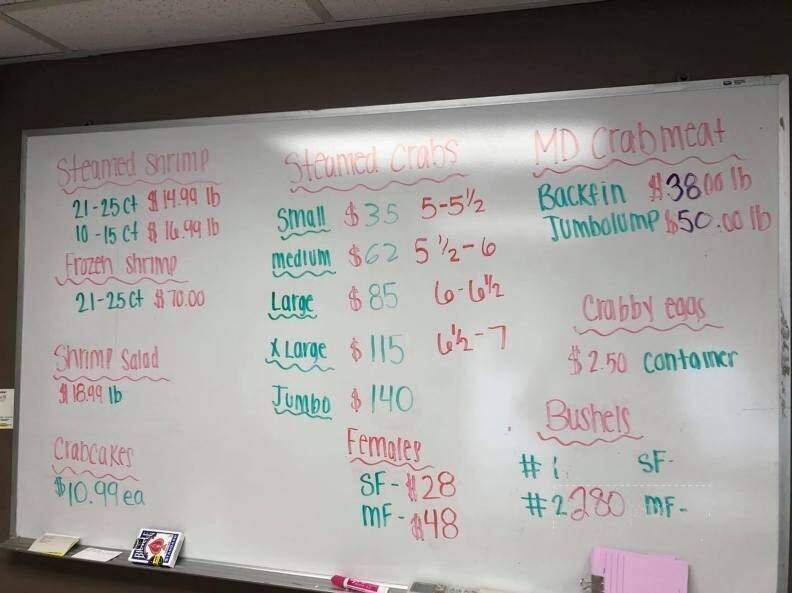 Steamed Shrimp
21-25 ct $14.99 lb
10-15 ct $16.99 lb
Frozen Shrimp
21-25 ct $70.00
Shrimp Salad
$18.99 lb
Crabcakes
$10.99 ea
Steamed Crabs
Small $35 5-5 1/2
medium $62 5 1/2-6
Large $85 6-6 1/2
X Large $115 6 1/2-7
Jumbo $140
Females
SF- $28
MF- $48
MD Crabmeat
Backfin $38.00 lb
Jumbolump $50.00 lb
Crabby eggs
$2.50 container
Bushels
#1 SF-
#2 280 MF-